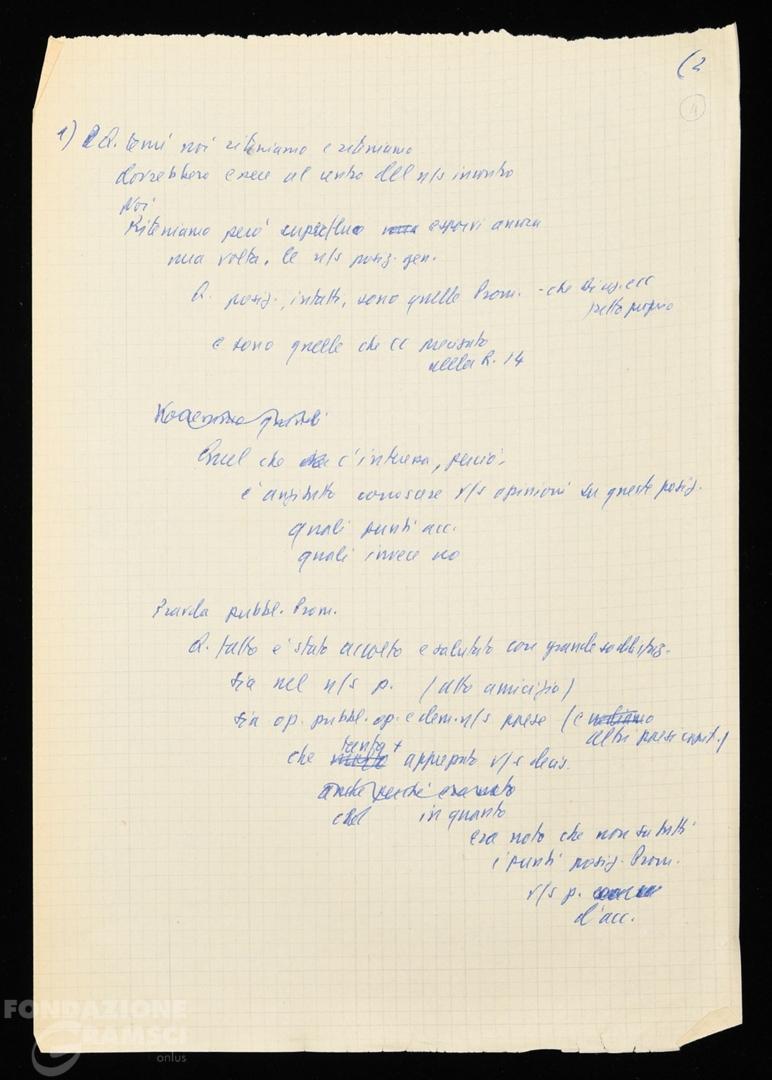 (2
4
1) Q. temi noi riteniamo e riteniamo
dovrebbero essere al centro del n/s incontro
Noi
Riteniamo però superfluo esporvi ancora
una volta, le n/s posiz. gen.
Q. posiz., infatti, sono quelle Prom. - che
e sono quelle che CC precisato
nella R. 14
quindi
Quel che c'interessa, perciò,
è anzitutto conoscere v/s opinioni su queste posiz.
quali punti acc.
quali invece no
Pravda pubbl. Prom.
Q. fatto è stato accolto e salutato con grande soddisfaz.
sia nel n/s p. (atto amicizia)
sia op. pubbl. op. e dem. n/s paese (e
altri paesi capit.)
tanto +
che apprezzato v/s decis.
anche perché era noto
che in quanto
era noto che non su tutti
i punti posiz. Prom.
v/s p.
d'acc.
FONDAZIONE
GRAMSCI
onlus